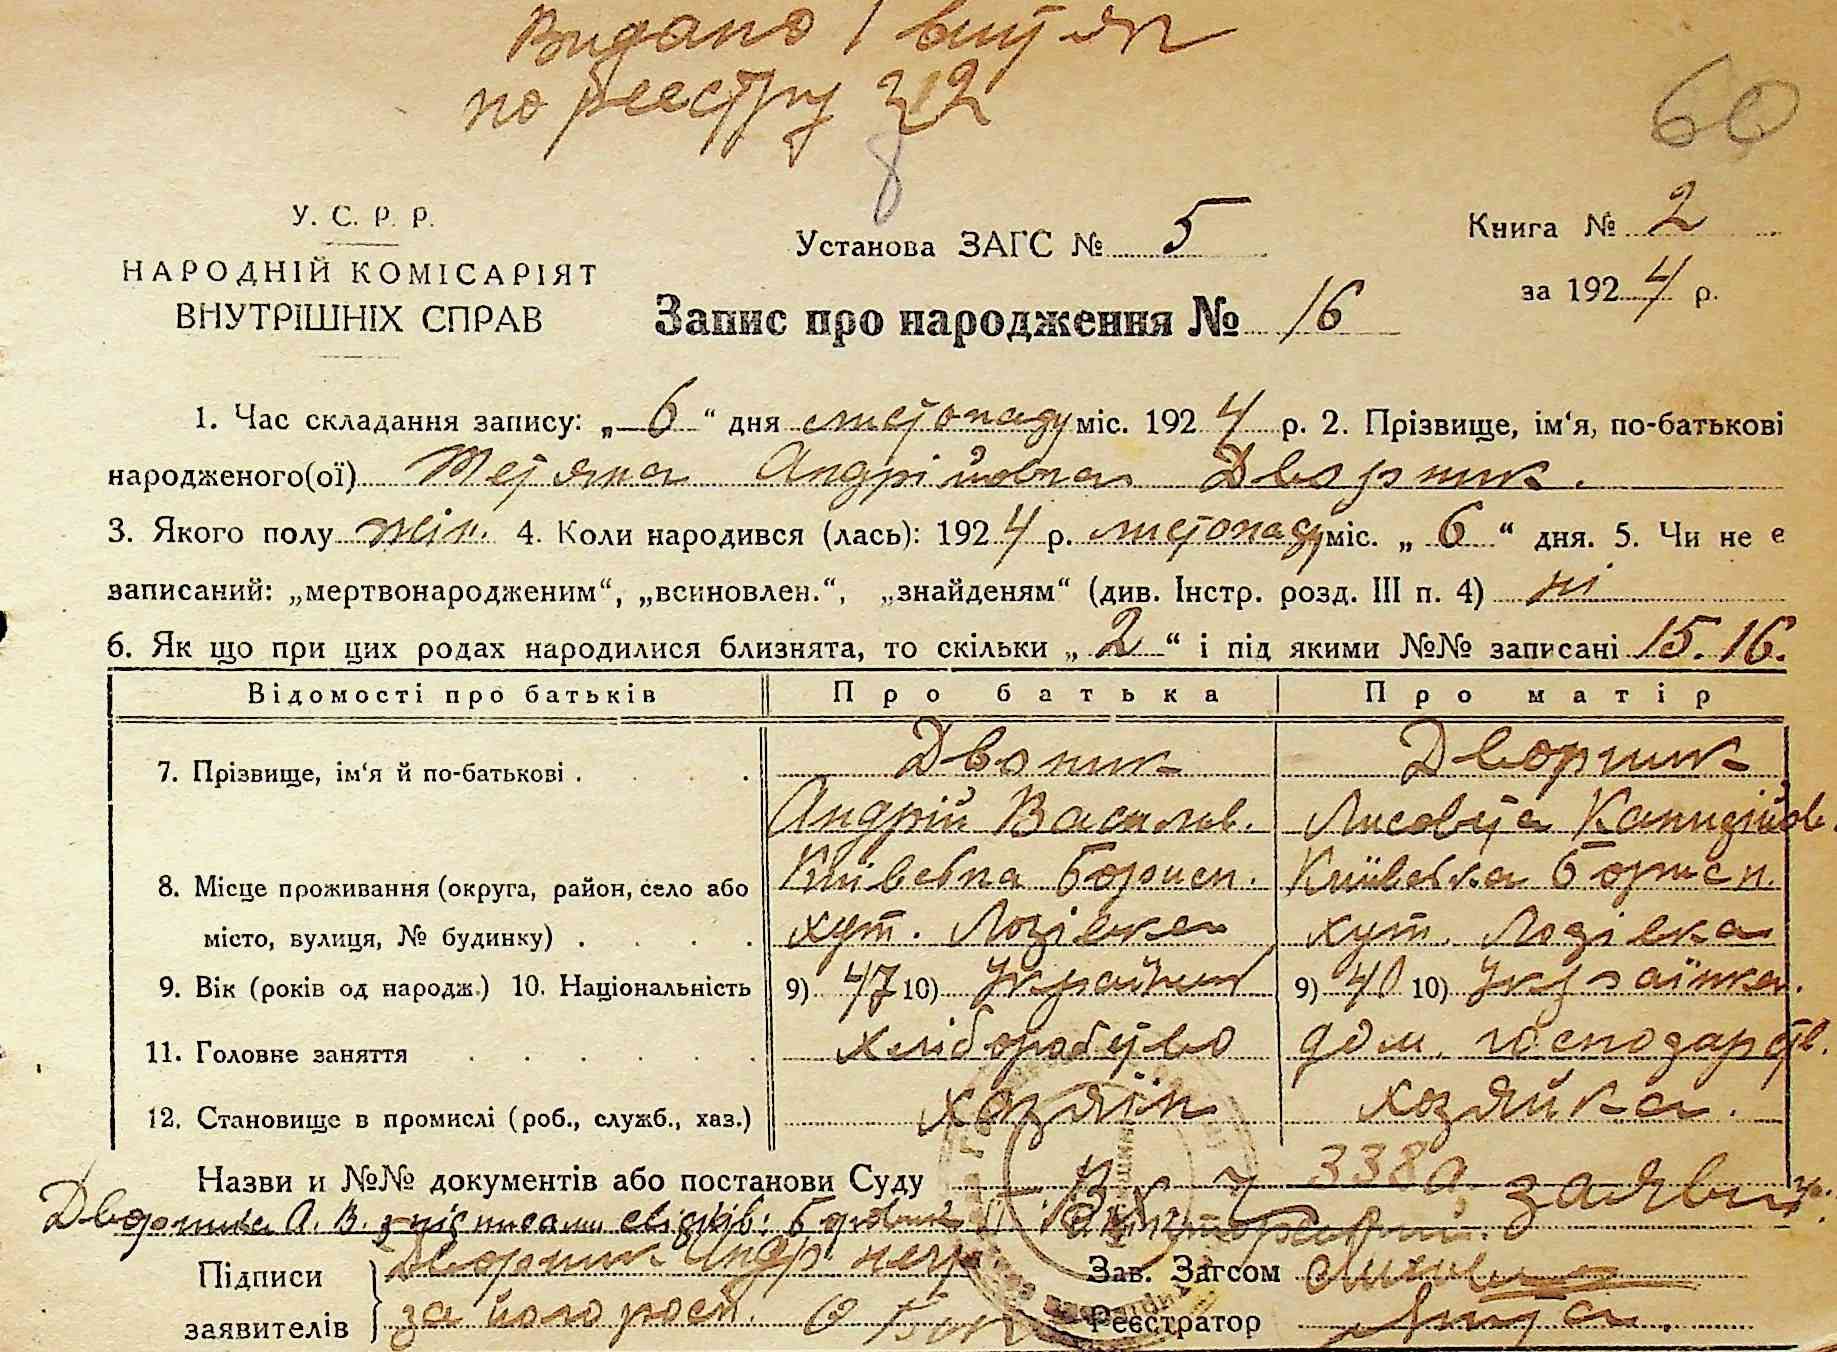 Видано 1 витяг
по реестру 212
8
60
У. С. Р. Р.
НАРОДНІЙ КОМІСАРІЯТ
ВНУТРІШНІХ СПРАВ
Установа ЗАГС № 5
Книга № 2
за 1924 р.
Запис про народження № 16
1. Час складання запису: „ 6 “ дня листопаду міс. 1924 р. 2. Прізвище, ім‘я, по-батькові
народженого(ої) Тетяна Андріївна Дворник.
3. Якого полу жін. 4. Коли народився (лась): 1924 р. листопаду міс. „ 6 “ дня. 5. Чи не є
записаний: „мертвонародженим“, „всиновлен.“, „знайденям“ (див. Інстр. розд. III п. 4) ні
6. Як що при цих родах народилися близнята, то скільки „ 2 “ і під якими №№ записані 15. 16.
Відомості про батьків Про батька Про матір
7. Прізвище, ім‘я й по-батькові . Двоник Дворник
Андрій Василов. Лисавета
8. Місце проживання (округа, район, село або Київська Борисп. Київська Борисп.
місто, вулиця, № будинку) . . . . хут. Лозівка хут. Лозівка
9. Вік (років од народж.) 10. Національність 9) 47 10) Українец 9) 40 10) Українка.
11. Головне заняття . . . . . . хліборобство дом. господарств.
12. Становище в промислі (роб., служб., хаз.) хозяїн хозяйка.
Назви и №№ документів або постанови Суду Вх 3380 заяви
Дворника А. В. з підписами свідків:
Підписи заявителів } Дворник Андр негр
за його росп.
Зав. Загсом
Реєстратор